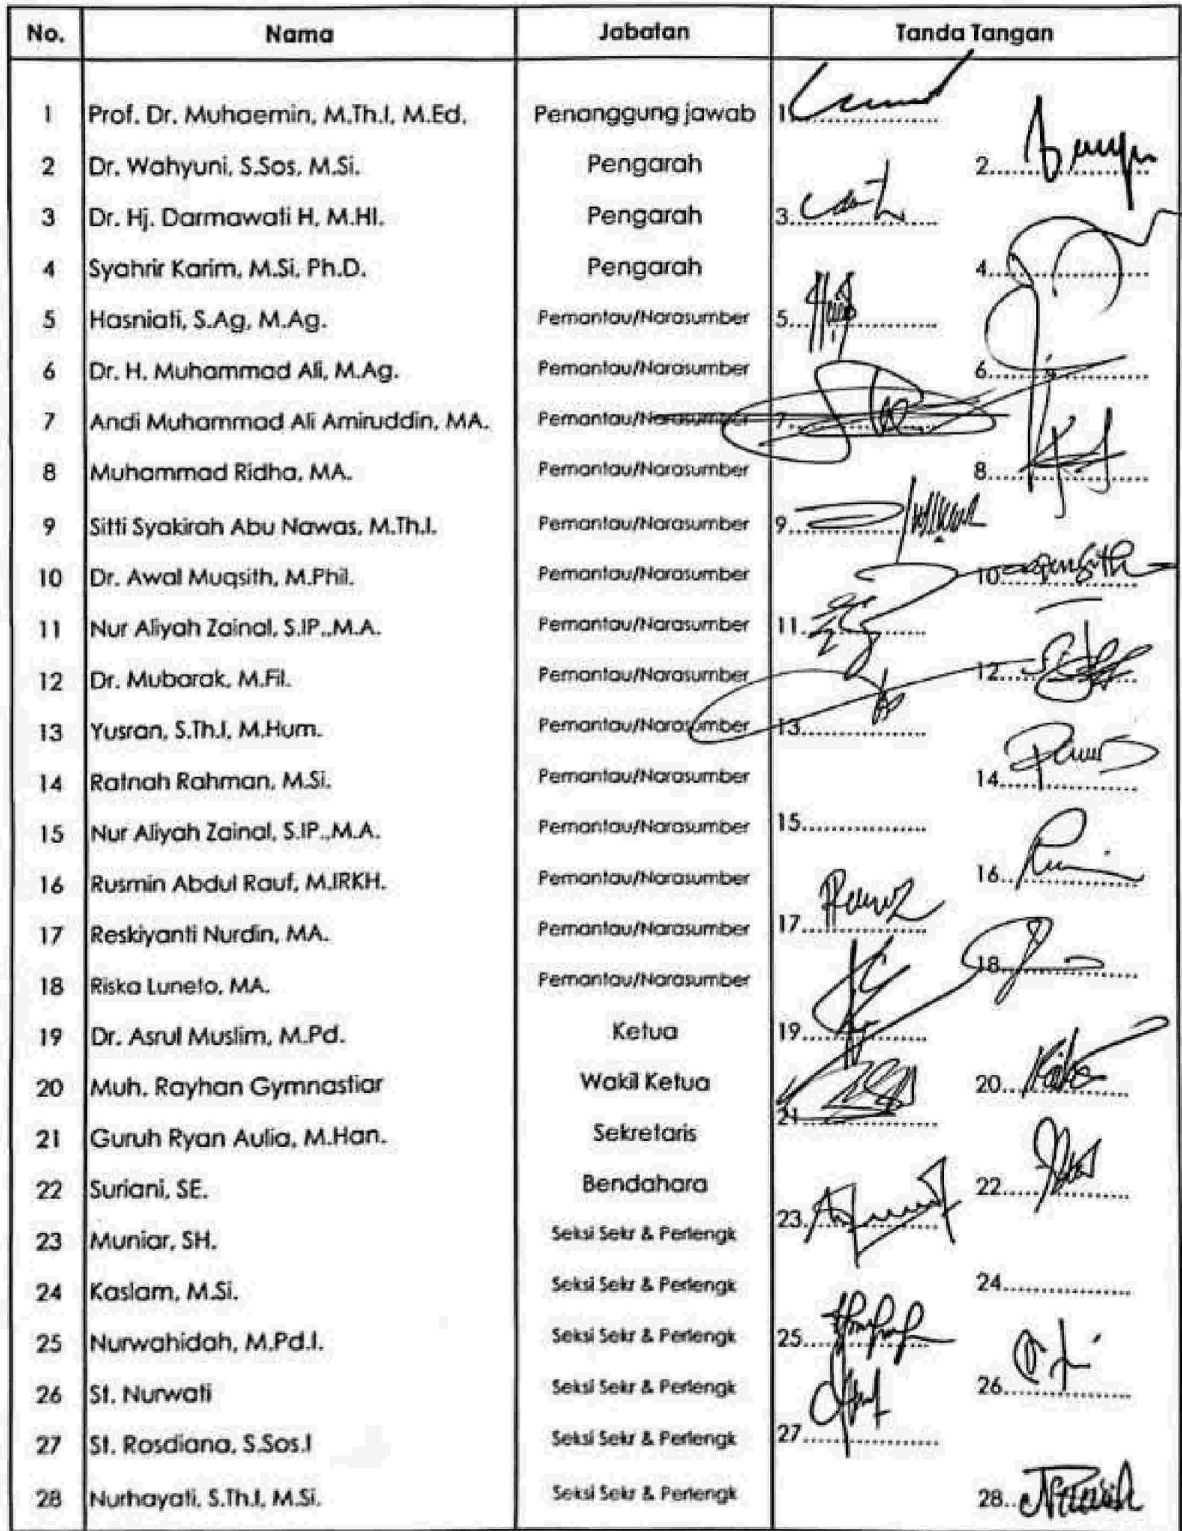 No. Nama Jabatan Tanda Tangan
1 Prof. Dr. Muhaemin, M.Th.I, M.Ed. Penanggung jawab 1..................
2 Dr. Wahyuni, S.Sos, M.Si. Pengarah 2..................
3 Dr. Hj. Darmawati H, M.HI. Pengarah 3..................
4 Syahrir Karim, M.Si, Ph.D. Pengarah 4..................
5 Hasniati, S.Ag, M.Ag. Pemantau/Narasumber 5..................
6 Dr. H. Muhammad Ali, M.Ag. Pemantau/Narasumber 6..................
7 Andi Muhammad Ali Amiruddin, MA. Pemantau/Narasumber 7..................
8 Muhammad Ridha, MA. Pemantau/Narasumber 8..................
9 Sitti Syakirah Abu Nawas, M.Th.I. Pemantau/Narasumber 9..................
10 Dr. Awal Muqsith, M.Phil. Pemantau/Narasumber 10..................
11 Nur Aliyah Zainal, S.IP.,M.A. Pemantau/Narasumber 11..................
12 Dr. Mubarak, M.Fil. Pemantau/Narasumber 12..................
13 Yusran, S.Th.I, M.Hum. Pemantau/Narasumber 13..................
14 Ratnah Rahman, M.Si. Pemantau/Narasumber 14..................
15 Nur Aliyah Zainal, S.IP.,M.A. Pemantau/Narasumber 15..................
16 Rusmin Abdul Rauf, M.IRKH. Pemantau/Narasumber 16..................
17 Reskiyanti Nurdin, MA. Pemantau/Narasumber 17..................
18 Riska Luneto, MA. Pemantau/Narasumber 18..................
19 Dr. Asrul Muslim, M.Pd. Ketua 19..................
20 Muh. Rayhan Gymnastiar Wakil Ketua 20..................
21 Guruh Ryan Aulia, M.Han. Sekretaris 21..................
22 Suriani, SE. Bendahara 22..................
23 Muniar, SH. Seksi Sekr & Perlengk 23..................
24 Kaslam, M.Si. Seksi Sekr & Perlengk 24..................
25 Nurwahidah, M.Pd.I. Seksi Sekr & Perlengk 25..................
26 St. Nurwati Seksi Sekr & Perlengk 26..................
27 St. Rosdiana, S.Sos.I Seksi Sekr & Perlengk 27..................
28 Nurhayati, S.Th.I, M.Si. Seksi Sekr & Perlengk 28..